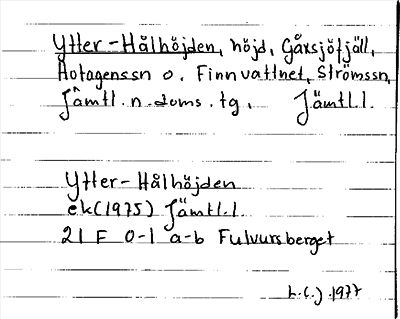 Ytter-Hålhöjden, höjd, Gåxsjöfjäll,
Hotagenssn o. Finnvattnet, Strömssn,
Jämtl. n. doms. tg, Jämtl.l.
Ytter-Hålhöjden
ek(1975) Jämtl.l
21 F 0-1 a-b Fulvursberget
1977